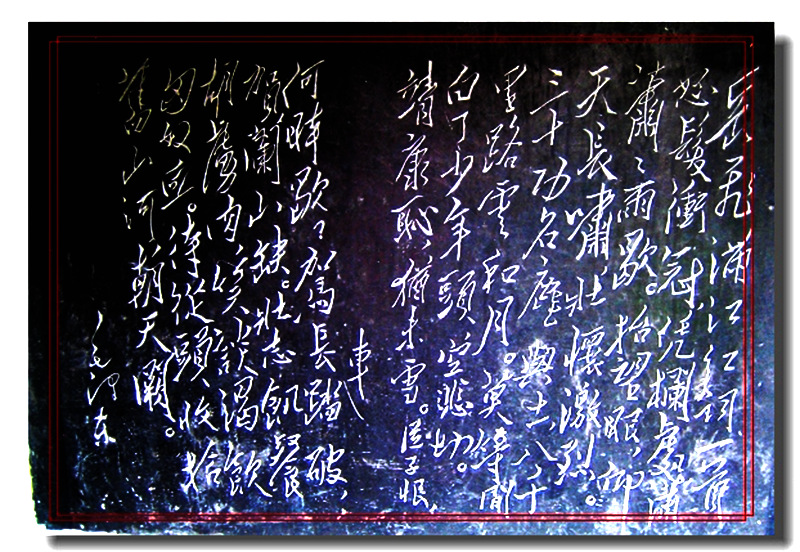 岳飛滿江紅詞一首
怒髮衝冠,凭欄處瀟
瀟〻雨歇。抬望眼,仰
天長嘯,壯懷激烈。
三十功名塵與土八千
里路雲和月。莫等閒
白了少年頭,空悲切。
靖康恥,猶未雪。臣子恨,
車
何時歇〻駕長踏破,
賀蘭山缺。壯志飢餐
胡虜肉,笑談渴飲
匈奴血。待從頭,收拾
舊山河,朝天闕。
毛泽东